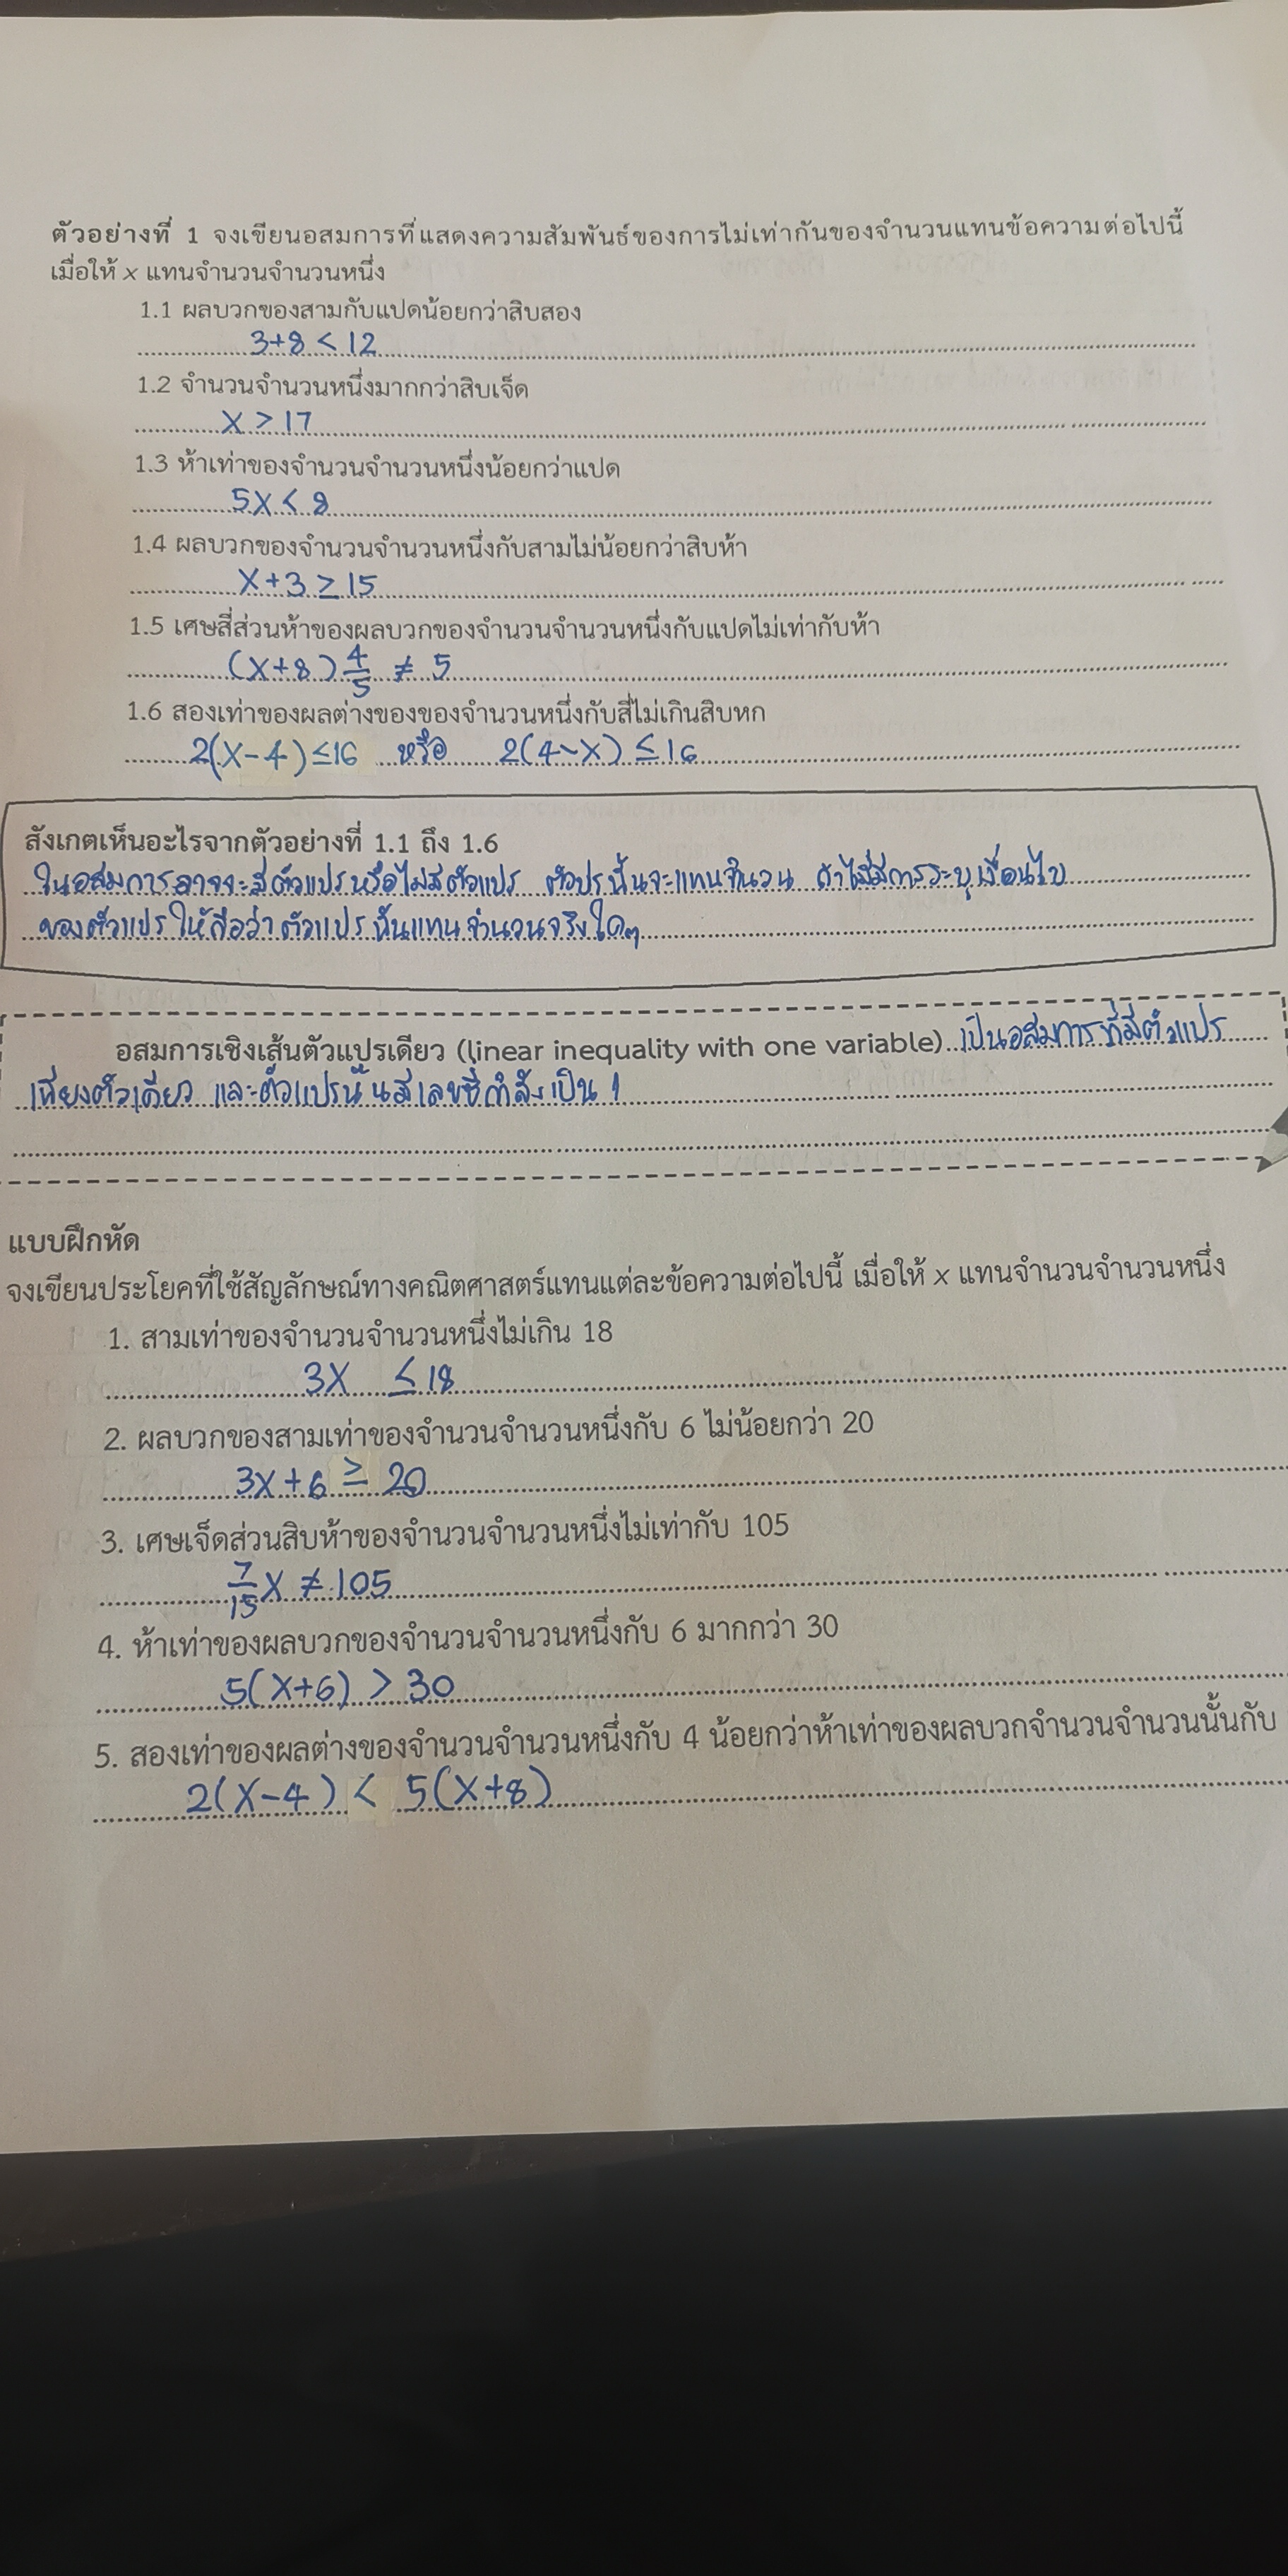 ตัวอย่างที่ 1 จงเขียนอสมการที่แสดงความสัมพันธ์ของการไม่เท่ากันของจำนวนแทนข้อความต่อไปนี้
เมื่อให้ x แทนจำนวนจำนวนหนึ่ง
1.1 ผลบวกของสามกับแปดน้อยกว่าสิบสอง
3+8 < 12
1.2 จำนวนจำนวนหนึ่งมากกว่าสิบเจ็ด
X > 17
1.3 ห้าเท่าของจำนวนจำนวนหนึ่งน้อยกว่าแปด
5X < 8
1.4 ผลบวกของจำนวนจำนวนหนึ่งกับสามไม่น้อยกว่าสิบห้า
X+3 ≥ 15
1.5 เศษสี่ส่วนห้าของผลบวกของจำนวนจำนวนหนึ่งกับแปดไม่เท่ากับห้า
(X+8) 4/5 ≠ 5
1.6 สองเท่าของผลต่างของของจำนวนหนึ่งกับสี่ไม่เกินสิบหก
2(X-4) ≤ 16 หรือ 2(4-X) ≤ 16
สังเกตเห็นอะไรจากตัวอย่างที่ 1.1 ถึง 1.6
ในอสมการอาจจะมีตัวแปรหรือไม่มีตัวแปร ตัวปรนั้นจะแทนจำนวน ถ้าไม่มีการระบุเงื่อนไข
ของตัวแปร ให้ถือว่า ตัวแปร นั้นแทน จำนวนจริงใดๆ
อสมการเชิงเส้นตัวแปรเดียว (linear inequality with one variable) เป็นอสมการที่มีตัวแปร
เพียงตัวเดียว และตัวแปรนั้นมีเลขชี้กำลังเป็น 1
แบบฝึกหัด
จงเขียนประโยคที่ใช้สัญลักษณ์ทางคณิตศาสตร์แทนแต่ละข้อความต่อไปนี้ เมื่อให้ x แทนจำนวนจำนวนหนึ่ง
1. สามเท่าของจำนวนจำนวนหนึ่งไม่เกิน 18
3X ≤ 18
2. ผลบวกของสามเท่าของจำนวนจำนวนหนึ่งกับ 6 ไม่น้อยกว่า 20
3X+6 ≥ 20
3. เศษเจ็ดส่วนสิบห้าของจำนวนจำนวนหนึ่งไม่เท่ากับ 105
7/15 X ≠ 105
4. ห้าเท่าของผลบวกของจำนวนจำนวนหนึ่งกับ 6 มากกว่า 30
5(X+6) > 30
5. สองเท่าของผลต่างของจำนวนจำนวนหนึ่งกับ 4 น้อยกว่าห้าเท่าของผลบวกจำนวนจำนวนนั้นกับ
2(X-4) < 5(X+8)